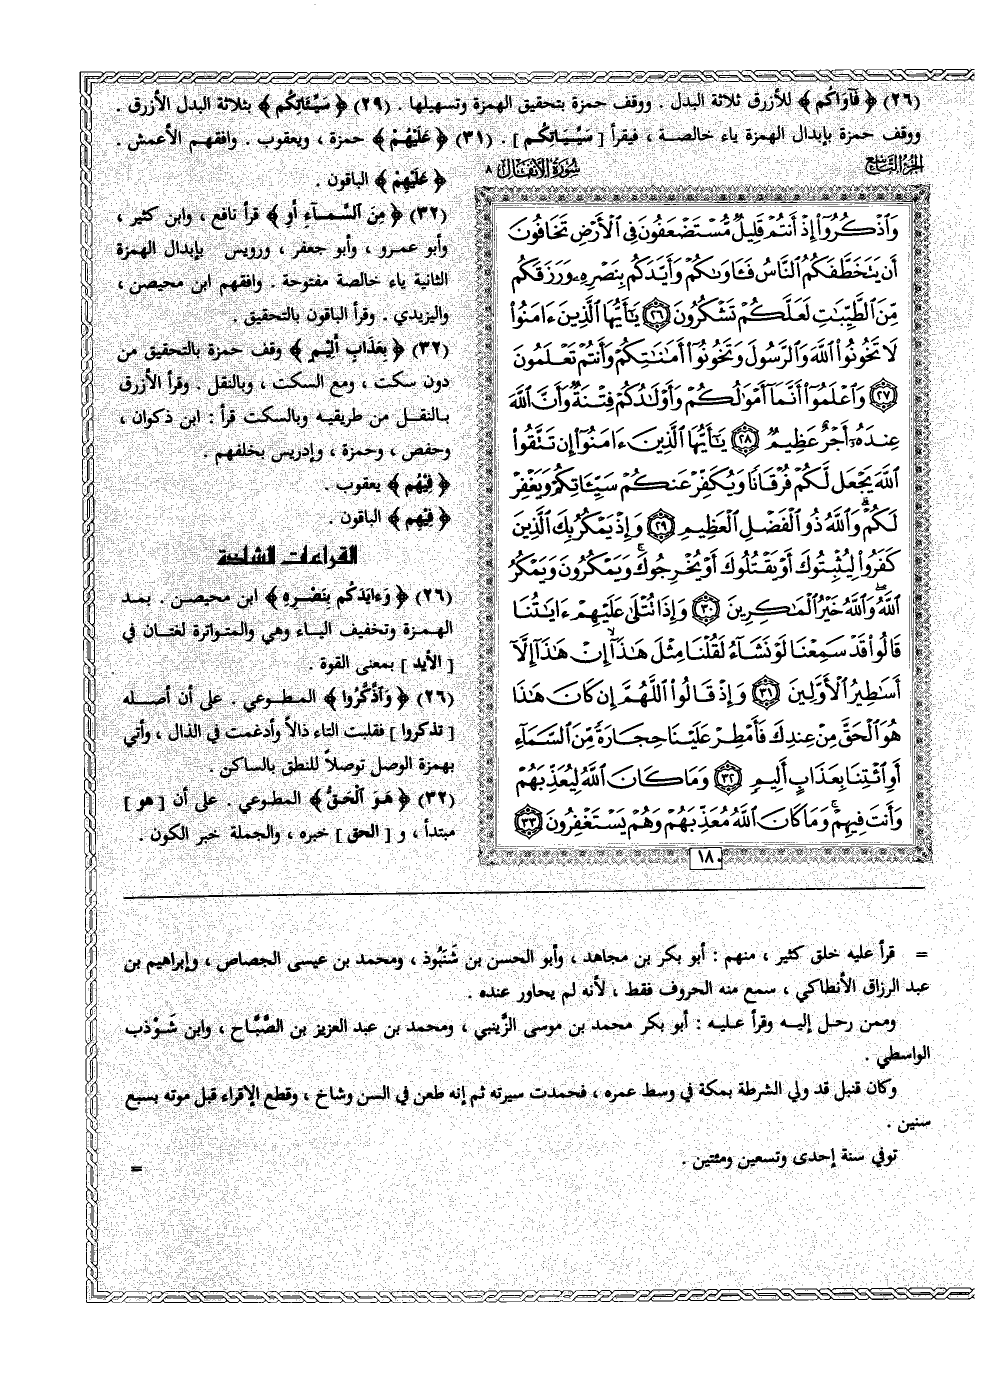 (٢٦) ﴿ فَآوَاكُم ﴾ للأزرق ثلاثة البدل . ووقف حمزة بتحقيق الهمزة وتسهيلها . (٢٩) ﴿ سَيِّئَاتِكُم ﴾ بثلاثة البدل الأزرق .
ووقف حمزة بإبدال الهمزة ياء خالصة ، فيقرأ [ سَيِّيَاتِكُم ] . (٣١) ﴿ عَلَيْهُمْ ﴾ حمزة ، ويعقوب . وافقهم الأعمش .
﴿ عَلَيْهِمْ ﴾ الباقون .
(٣٢) ﴿ مِنَ السَّمَاءِ أَوِ ﴾ قرأ نافع ، وابن كثير ،
وأبو عمرو ، وأبو جعفر ، ورويس بإبدال الهمزة
الثانية ياء خالصة مفتوحة . وافقهم ابن محيصن ،
واليزيدي . وقرأ الباقون بالتحقيق .
(٣٢) ﴿ بِعَذَابٍ أَلِيمٍ ﴾ وقف حمزة بالتحقيق من
دون سكت ، ومع السكت ، وبالنقل . وقرأ الأزرق
بالنقل من طريقيه وبالسكت قرأ : ابن ذكوان ،
وحفص ، وحمزة ، وإدريس بخلفهم .
﴿ فِيْهُم ﴾ يعقوب .
﴿ فِيْهِم ﴾ الباقون .
القراءات الشاذة
(٢٦) ﴿ وَءَايَدَكُم بِنَصْرِهِ ﴾ ابن محيصن . بمد
الهمزة وتخفيف الياء وهي والمتواترة لغتان في
[ الأيد ] بمعنى القوة .
(٢٦) ﴿ وَاذَّكَّرُوا ﴾ المطوعي . على أن أصله
[ تذكروا ] فقلبت التاء ذالاً وأدغمت في الذال ، وأتي
بهمزة الوصل توصلاً للنطق بالساكن .
(٣٢) ﴿ هُوَ الْحَقُّ ﴾ المطوعي . على أن [ هو ]
مبتدأ ، و [ الحق ] خبره ، والجملة خبر الكون .
الجزء التاسع
سورة الأنفال ٨
وَاذْكُرُوا إِذْ أَنتُمْ قَلِيلٌ مُّسْتَضْعَفُونَ فِي الْأَرْضِ تَخَافُونَ
أَن يَتَخَطَّفَكُمُ النَّاسُ فَآوَىٰكُمْ وَأَيَّدَكُم بِنَصْرِهِ وَرَزَقَكُم
مِّنَ الطَّيِّبَٰتِ لَعَلَّكُمْ تَشْكُرُونَ ٢٦ يَٰأَيُّهَا الَّذِينَ ءَامَنُوا
لَا تَخُونُوا اللَّهَ وَالرَّسُولَ وَتَخُونُوا أَمَٰنَٰتِكُمْ وَأَنتُمْ تَعْلَمُونَ
٢٧ وَاعْلَمُوا أَنَّمَا أَمْوَٰلُكُمْ وَأَوْلَٰدُكُمْ فِتْنَةٌ وَأَنَّ اللَّهَ
عِندَهُ أَجْرٌ عَظِيمٌ ٢٨ يَٰأَيُّهَا الَّذِينَ ءَامَنُوا إِن تَتَّقُوا
اللَّهَ يَجْعَل لَّكُمْ فُرْقَانًا وَيُكَفِّرْ عَنكُمْ سَيِّـَٔاتِكُمْ وَيَغْفِرْ
لَكُمْ وَاللَّهُ ذُو الْفَضْلِ الْعَظِيمِ ٢٩ وَإِذْ يَمْكُرُ بِكَ الَّذِينَ
كَفَرُوا لِيُثْبِتُوكَ أَوْ يَقْتُلُوكَ أَوْ يُخْرِجُوكَ وَيَمْكُرُونَ وَيَمْكُرُ
اللَّهُ وَاللَّهُ خَيْرُ الْمَٰكِرِينَ ٣٠ وَإِذَا تُتْلَىٰ عَلَيْهِمْ ءَايَٰتُنَا
قَالُوا قَدْ سَمِعْنَا لَوْ نَشَاءُ لَقُلْنَا مِثْلَ هَٰذَا إِنْ هَٰذَا إِلَّا
أَسَٰطِيرُ الْأَوَّلِينَ ٣١ وَإِذْ قَالُوا اللَّهُمَّ إِن كَانَ هَٰذَا
هُوَ الْحَقَّ مِنْ عِندِكَ فَأَمْطِرْ عَلَيْنَا حِجَارَةً مِّنَ السَّمَاءِ
أَوِ ائْتِنَا بِعَذَابٍ أَلِيمٍ ٣٢ وَمَا كَانَ اللَّهُ لِيُعَذِّبَهُمْ
وَأَنتَ فِيهِمْ وَمَا كَانَ اللَّهُ مُعَذِّبَهُمْ وَهُمْ يَسْتَغْفِرُونَ ٣٣
١٨٠
= قرأ عليه خلق كثير ، منهم : أبو بكر بن مجاهد ، وأبو الحسن بن شَنَبُوذ ، ومحمد بن عيسى الجصاص ، وإبراهيم بن
عبد الرزاق الأنطاكي ، سمع منه الحروف فقط ، لأنه لم يحاور عنده .
وممن رحل إليه وقرأ عليه : أبو بكر محمد بن موسى الزَّينبي ، ومحمد بن عبد العزيز بن الصَّبَّاح ، وابن شَوْذب
الواسطي .
وكان قنبل قد ولي الشرطة بمكة في وسط عمره ، فحمدت سيرته ثم إنه طعن في السن وشاخ ، وقطع الإقراء قبل موته بسبع
سنين .
توفي سنة إحدى وتسعين ومئتين .
=